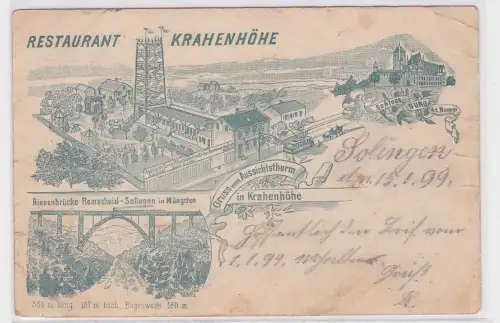 RESTAURANT KRAHENHÖHE
Schloss BURG a.d. Wupper
Gruss vom Aussichtsthurm
in Krahenhöhe
Solingen
d. 15.1.99.
Riesenbrücke Remscheid-Solingen in Müngsten
Hoffentlich den Brief vom
1.1.99. erhalten
Gruß
500 m lang. 107 m hoch, Bogenweite 160 m